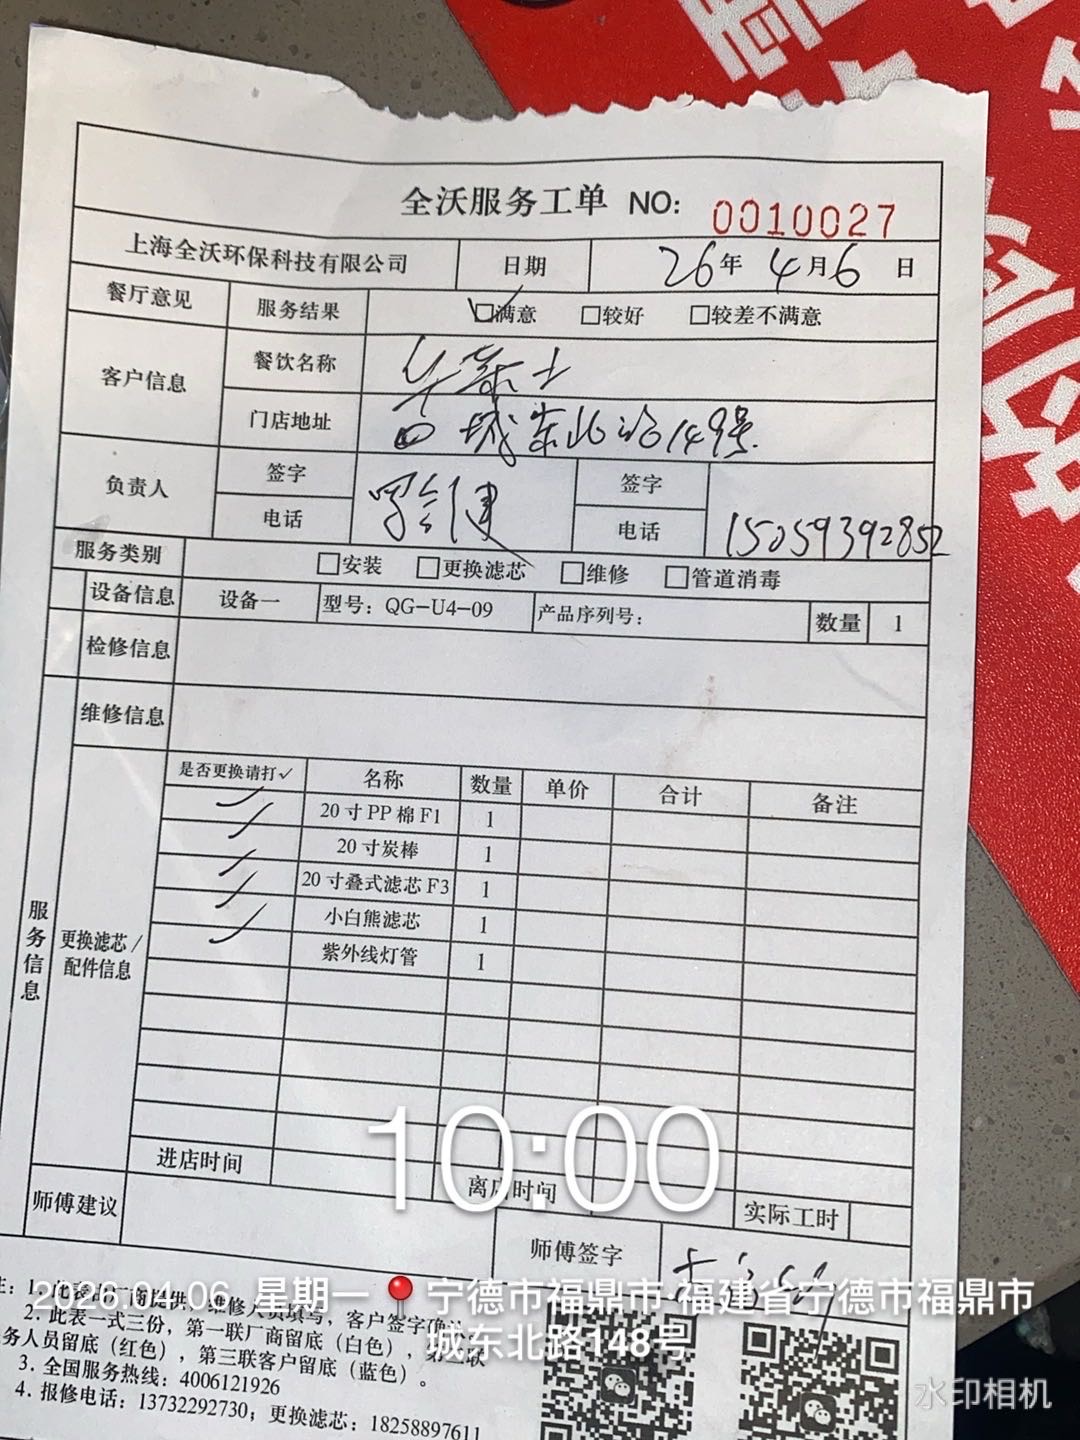 全沃服务工单 NO: 0010027
上海全沃环保科技有限公司 日期 26年 4月6 日
餐厅意见 服务结果 ☑满意 □较好 □较差不满意
客户信息 餐饮名称 华莱士
门店地址 城东北路149号
负责人 签字 签字
电话 电话 15059392852
服务类别 □安装 □更换滤芯 □维修 □管道消毒
设备信息 设备一 型号：QG-U4-09 产品序列号： 数量 1
检修信息
维修信息
服务信息
更换滤芯/配件信息
是否更换请打✓ 名称 数量 单价 合计 备注
✓ 20寸PP棉F1 1
✓ 20寸炭棒 1
✓ 20寸叠式滤芯F3 1
✓ 小白熊滤芯 1
✓ 紫外线灯管 1
进店时间 离店时间 实际工时
师傅建议 师傅签字
10:00
2026.04.06 星期一 宁德市福鼎市 福建省宁德市福鼎市
城东北路148号
1. 此表由厂商提供，维修人员填写，客户签字确
2. 此表一式三份，第一联厂商留底（白色），第二联
务人员留底（红色），第三联客户留底（蓝色）。
3. 全国服务热线：4006121926
4. 报修电话：13732292730；更换滤芯：18258897611
水印相机